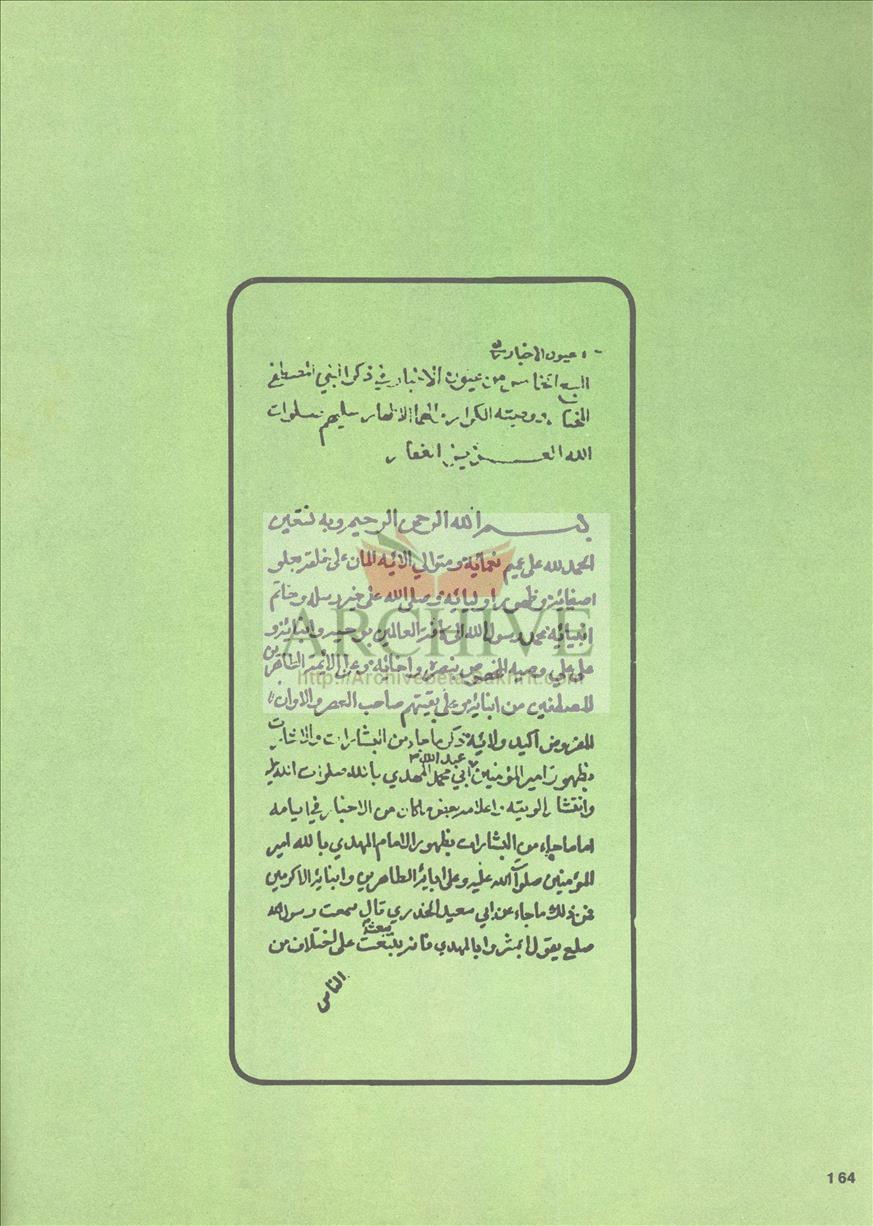 عيون الاخبار
السبع الخامس من عيون الاخبار في ذكر النبي المصطفى
المختار ووصيه الكرار الاطهار عليهم صلوات
الله العزيز الغفار
بسم الله الرحمن الرحيم وبه نستعين
الحمد لله على عميم نعمائه ومتوالي الائه المان على خلقه بعلو
اصفيائه وظهور اوليائه وصلى الله على خير رسله وخاتم
انبيائه محمد رسول الله الى كافة العالمين بوحيه وانبائه و
على علي وصيه المخصوص بنصره واخائه وعلى الائمة الطاهرين
المصطفين من ابنائه وعلى بقيتهم صاحب العصر والاوان
المفروض اكيد ولائه ذكر ما جاء من البشارات والاشارات
بظهور امير المؤمنين ابي محمد عبد الله المهدي بالله صلوات الله عليه
وانتشار الويته واعلامه وبعض ما كان من الاخبار في ايامه
اما ما جاء من البشارات بظهور الامام المهدي بالله امير
المؤمنين صلوات الله عليه وعلى ابائه الطاهرين وابنائه الاكرمين
فمن ذلك ما جاء عن ابي سعيد الخدري قال سمعت رسول الله
صلع يقول ابشروا بالمهدي فانه يبعث على اختلاف من
الناس
ARCHIVE
http://Archivebeta.Sakhrit.com
164